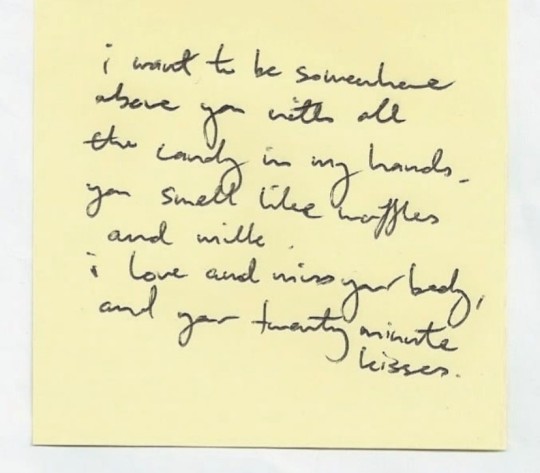 i want to be somewhere
above you with all
the candy in my hands.
you smell like waffles
and milk.
i love and miss your body,
and your twenty minute
kisses.